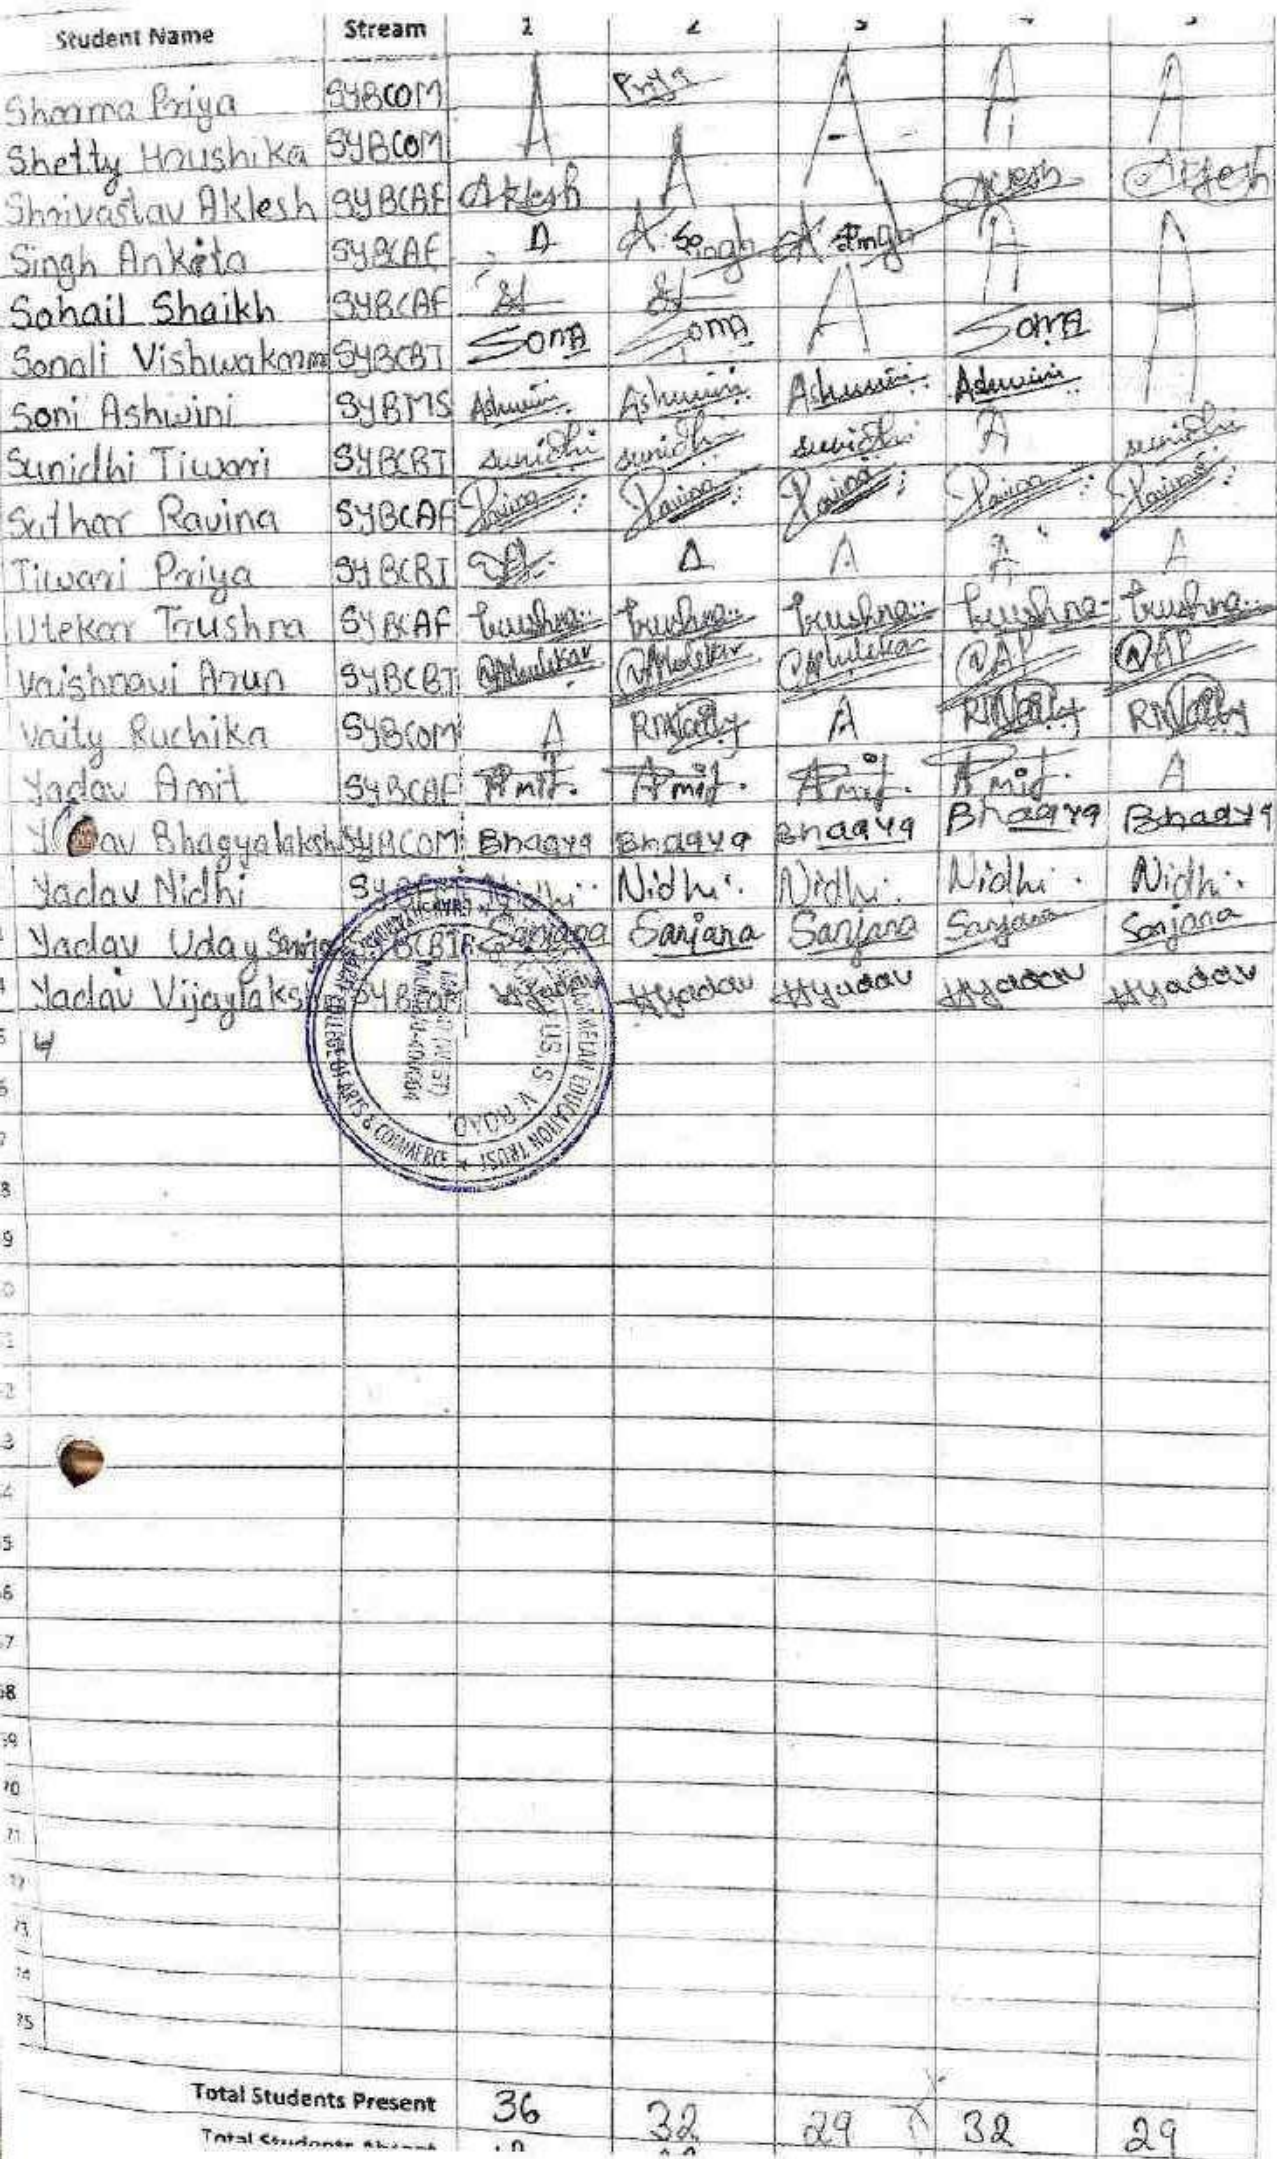 Student Name Stream 1 2 3 4 5
Sharma Priya SYBCOM A Priya A A A
Shetty Hrushika SYBCOM A
Shrivastav Aklesh SYBCAF Aklesh Aklesh
Singh Ankita SYBCAF A A. Singh A. Singh A A
Sohail Shaikh SYBCAF A
Sonali Vishwakarma SYBCBI Sona Sona Sona
Soni Ashwini SYBMS Ashwini Ashwini Ashwini Ashwini
Sunidhi Tiwari SYBCBI sunidhi sunidhi sunidhi A sunidhi
Suthar Ravina SYBCAF Ravina Ravina Ravina Ravina Ravina
Tiwari Priya SYBCBI A A A A
Utekar Trushna SYBCAF Trushna Trushna Trushna Trushna Trushna
Vaishnavi Arun SYBCBI AP AP
Vaity Ruchika SYBCOM A RMVaity A RMVaity RMVaity
Yadav Amit SYBCAF Amit. Amit. Amit. Amit. A
Yadav Bhagyalaksh SYBCOM Bhagya Bhagya Bhagya Bhagya Bhagya
Yadav Nidhi Nidhi Nidhi Nidhi Nidhi Nidhi
Yadav Uday Sanja SYBCBI Sanjana Sanjana Sanjana Sanjana Sanjana
Yadav Vijaylaksh Hyadav Hyadav Hyadav Hyadav
4
COLLEGE OF ARTS & COMMERCE ★ EDUCATION TRUST
S. V. ROAD,
8
9
68
70
71
73
75
Total Students Present 36 32 29 32 29
Total Students Absent